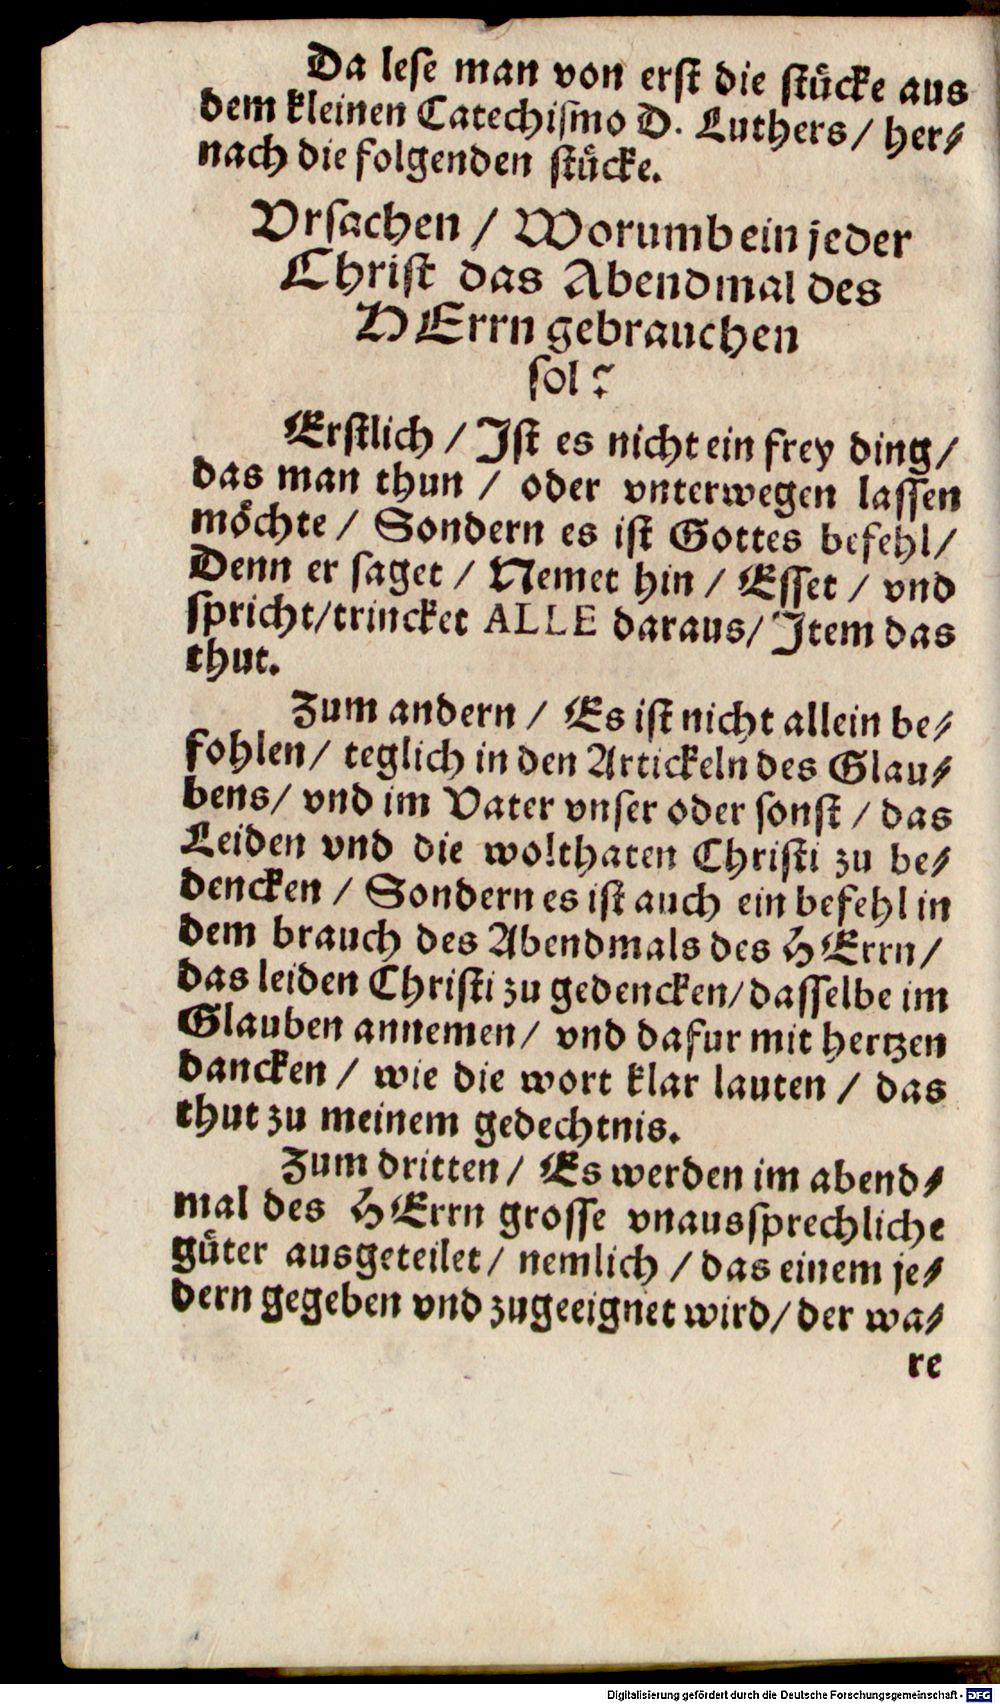 Da lese man von erst die stücke aus
dem kleinen Catechismo D. Luthers/ her⸗
nach die folgenden stücke.
Vrsachen / Worumb ein jeder
Christ das Abendmal des
HErrn gebrauchen
sol?
Erstlich / Ist es nicht ein frey ding/
das man thun / oder vnterwegen lassen
möchte / Sondern es ist Gottes befehl/
Denn er saget / Nemet hin / Esset / vnd
spricht/trincket ALLE daraus/ Item das
thut.
Zum andern / Es ist nicht allein be⸗
fohlen/ teglich in den Artickeln des Glau⸗
bens/ vnd im Vater vnser oder sonst / das
Leiden vnd die wolthaten Christi zu be⸗
dencken / Sondern es ist auch ein befehl in
dem brauch des Abendmals des HErrn/
das leiden Christi zu gedencken/ dasselbe im
Glauben annemen/ vnd dafur mit hertzen
dancken / wie die wort klar lauten / das
thut zu meinem gedechtnis.
Zum dritten/ Es werden im abend⸗
mal des HErrn grosse vnaussprechliche
güter ausgeteilet/ nemlich / das einem je⸗
dern gegeben vnd zugeeignet wird/ der wa⸗
re
Digitalisierung gefördert durch die Deutsche Forschungsgemeinschaft - DFG